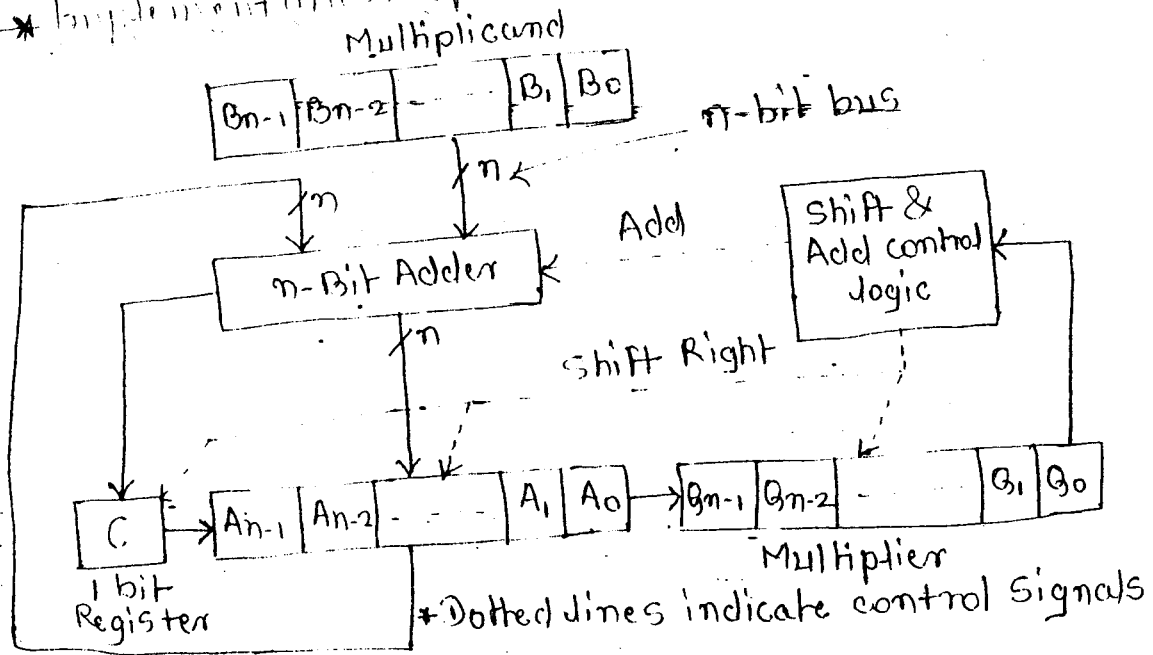 Multiplicand
Bn-1 Bn-2 - - - B1 B0
n-bit bus
n
n
Shift &
Add control
logic
Add
n-Bit Adder
n
Shift Right
C
An-1 An-2 - - - A1 A0
Qn-1 Qn-2 - - - Q1 Q0
1 bit
Register
Multiplier
*Dotted lines indicate control signals